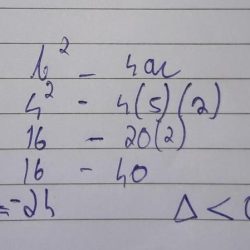 b² - 4ac
4² - 4(5)(2)
16 - 20(2)
16 - 40
= -24 Δ < 0